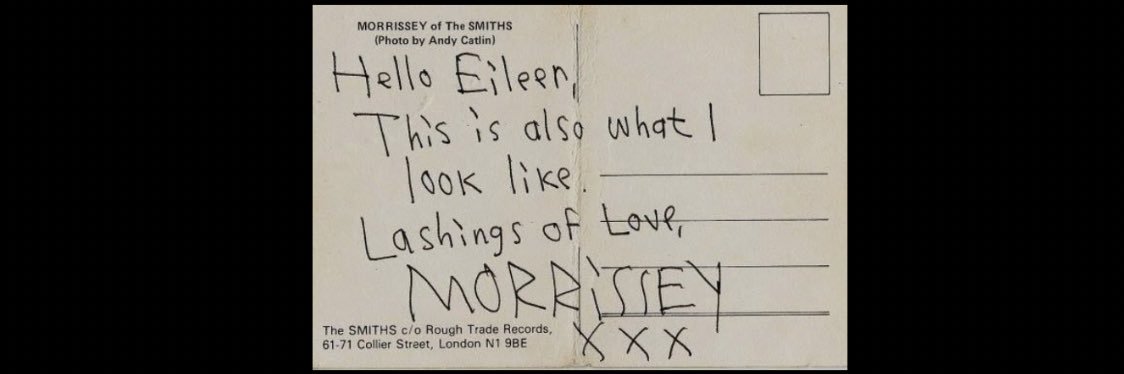 MORRISSEY of The SMITHS
(Photo by Andy Catlin)
Hello Eileen,
This is also what I
look like.
Lashings of Love,
MORRiSSEY
XXX
The SMITHS c/o Rough Trade Records,
61-71 Collier Street, London N1 9BE